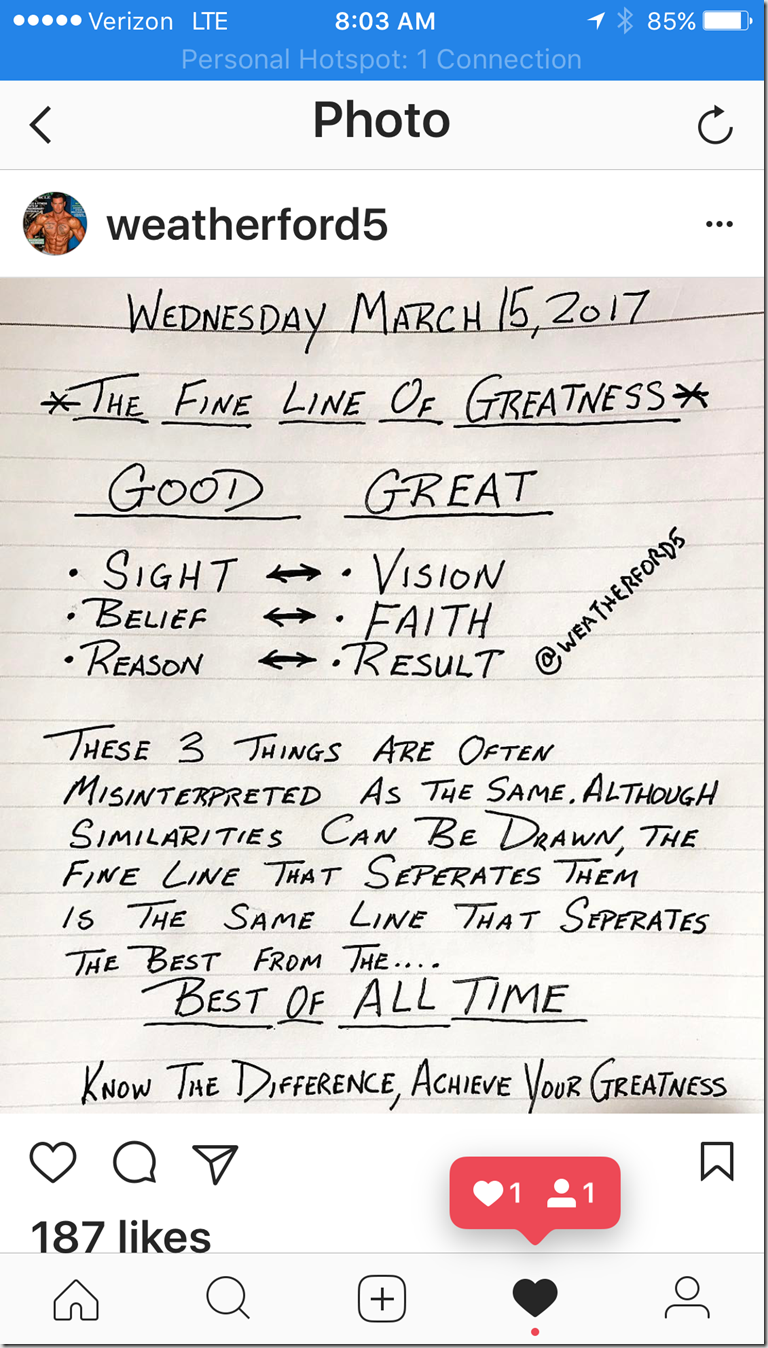 Verizon LTE 8:03 AM 85%
Personal Hotspot: 1 Connection
Photo
weatherford5
WEDNESDAY MARCH 15, 2017
*THE FINE LINE OF GREATNESS*
GOOD GREAT
• SIGHT ↔ • VISION
• BELIEF ↔ • FAITH
• REASON ↔ • RESULT
@WEATHERFORD5
THESE 3 THINGS ARE OFTEN
MISINTERPRETED AS THE SAME. ALTHOUGH
SIMILARITIES CAN BE DRAWN, THE
FINE LINE THAT SEPERATES THEM
IS THE SAME LINE THAT SEPERATES
THE BEST FROM THE....
BEST OF ALL TIME
KNOW THE DIFFERENCE, ACHIEVE YOUR GREATNESS
1 1
187 likes